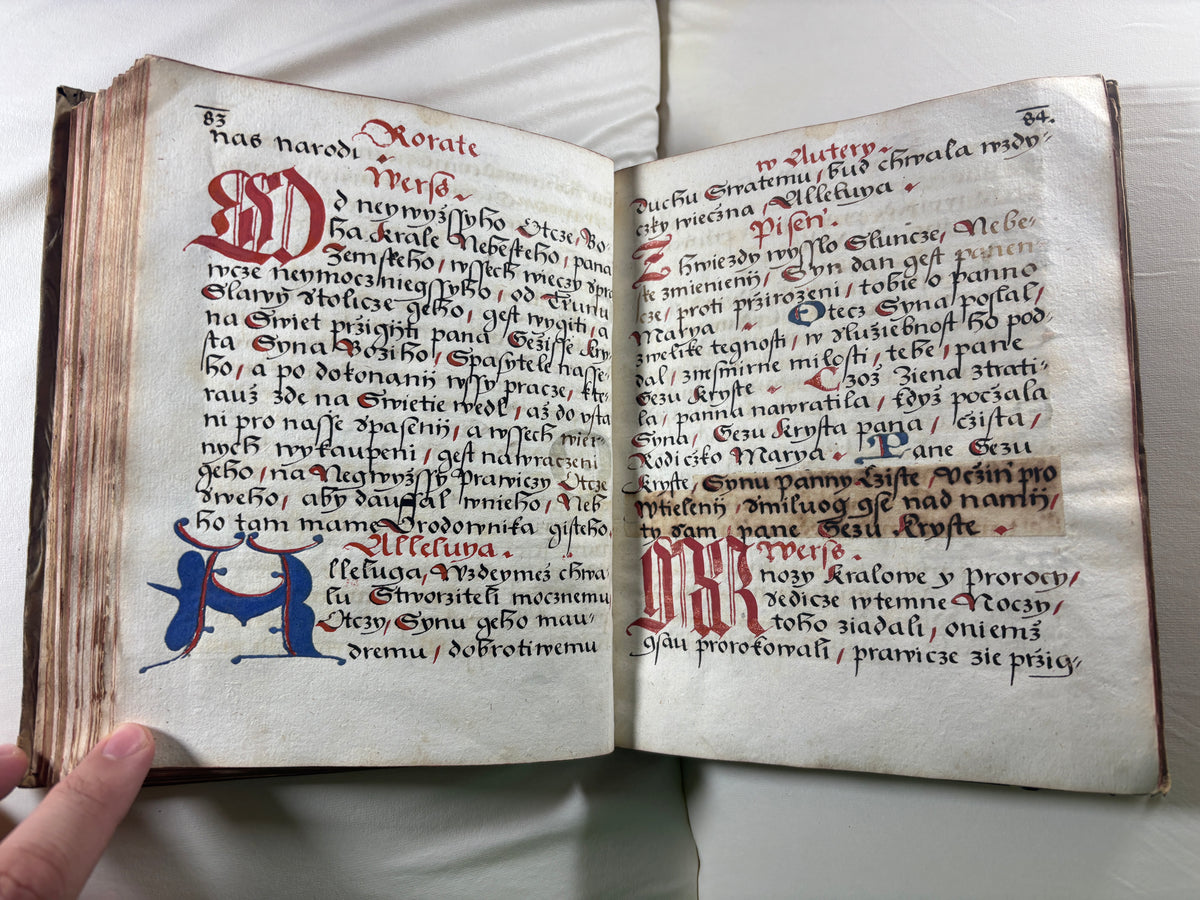 83
Rorate
nas narodi.
Werss.
Od neywyżssyho Otcze, Bo-
ha Krale Nebeskeho, pana
Zemskeho, wssech wieczy spra
wcze neymoczniegssyho, od Trunu
Slawy Stolicze geho, gest wygiti, a
na Swiet przigiti pana Gezisse Kry
sta Syna Bożiho, Spasytele nasse-
ho, a po dokonanij wssy pracze, kte-
rauż zde na Swietie wedl, aż do vsta
ni pro nasse spasenij, a wssech wier
nych wykaupeni, gest nawraczeni
geho, na Neywyżssy Prawiczy Otcze
sweho, aby dau[...]al wnieho, Neb
ho tam mame Orodownika gisteho.
Alleluya.
Alleluga, Wzdeymeż chwa
lu Stworziteli mocznemu
Otczy, Synu geho mau-
dremu, dobrotiwemu
84.
w Autery.
duchu Swatemu, bud chwala wzdy-
czky wieczna, Alleluya.
Pisen.
Z hwiezdy wysslo Sluncze, Nebe-
ske zmienienij, Syn dan gest panen
cze, proti przirozeni, tobie o panno
Marya. Otecz Syna poslal,
z welike tegnosti, w służiebnost ho pod-
dal, z nesmirne milosti, tebe, pane
Gezu Kryste. Czoż żiena ztrati-
la, panna nawratila, kdyż poczala
Syna, Gezu Krysta pana, czista,
Rodiczko Marya. Pane Gezu
Kryste, Synu panny Cziste, Vczin pro
wtielenij, smiluog gse nad namij,
ty sam, pane Gezu Kryste.
Werss.
Mnozy Kralowe y Prorocy,
sedicze wtemne Noczy,
toho ziadali, oniemż
gsau prorokowali, prawicze zie przig-